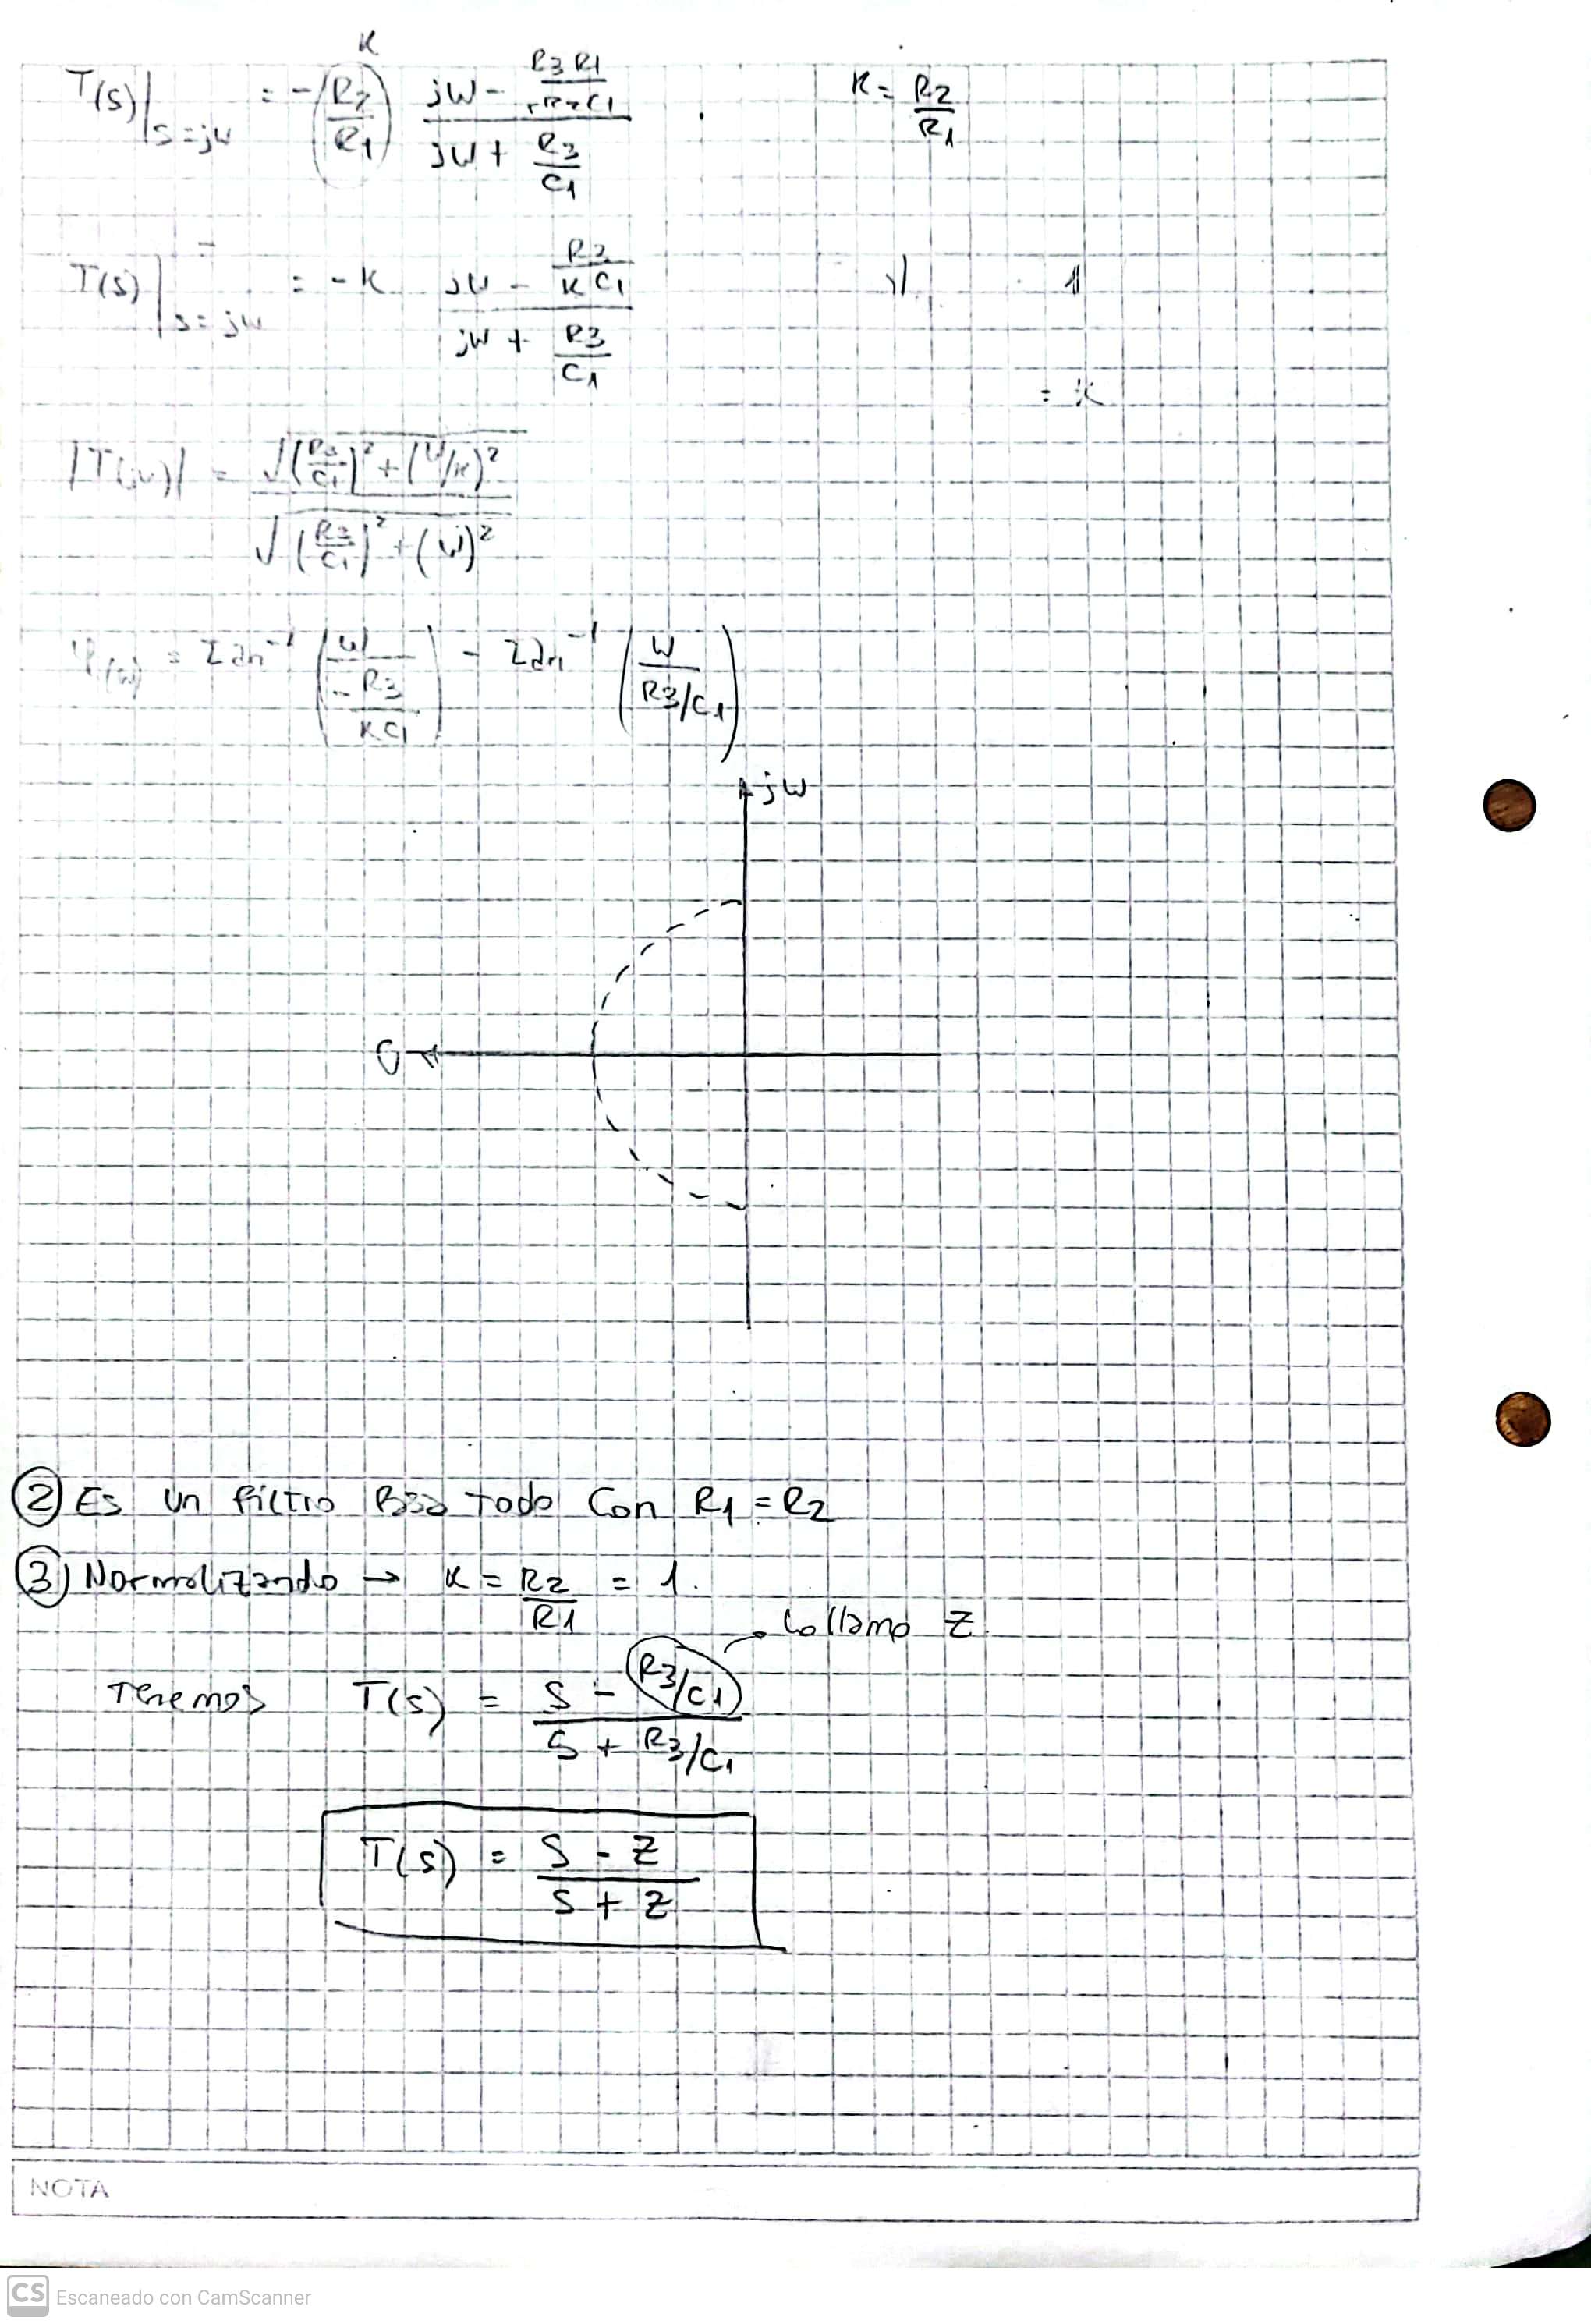 T(s)|s=jw = -(R2/R1) K (jw - R3 R1/R2C1)/(jw + R3/C1) K = R2/R1
T(s)|s=jw = -K (jw - R3/KC1)/(jw + R3/C1)
|T(jw)| = √((R3/C1)² + (W/K)²) / √((R3/C1)² + (W)²)
φ(w) = tan⁻¹(W/(-R3/KC1)) - tan⁻¹(W/(R3/C1))
jW
σ
② Es un filtro Pasa todo Con R1 = R2
③ Normalizando → K = R2/R1 = 1.
Lo llamo Z
Tenemos T(s) = (S - R3/C1)/(S + R3/C1)
T(s) = (S - Z)/(S + Z)
NOTA
CS Escaneado con CamScanner